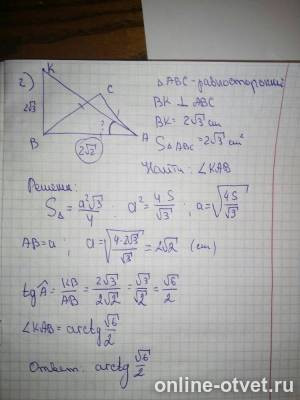 2)
K
C
2√3
B
A
?
2√2
△ABC - равносторонний
BK ⊥ ABC
BK = 2√3 cm
S△ABC = 2√3 cm²
Найти: ∠KAB
Решение:
S△ = a²√3/4 ; a² = 4S/√3 ; a = √(4S/√3)
AB = a ; a = √(4·2√3/√3) = 2√2 (cm)
tg Â = KB/AB = 2√3/2√2 = √3/√2 = √6/2
∠KAB = arctg √6/2
Ответ: arctg √6/2
online-otvet.ru